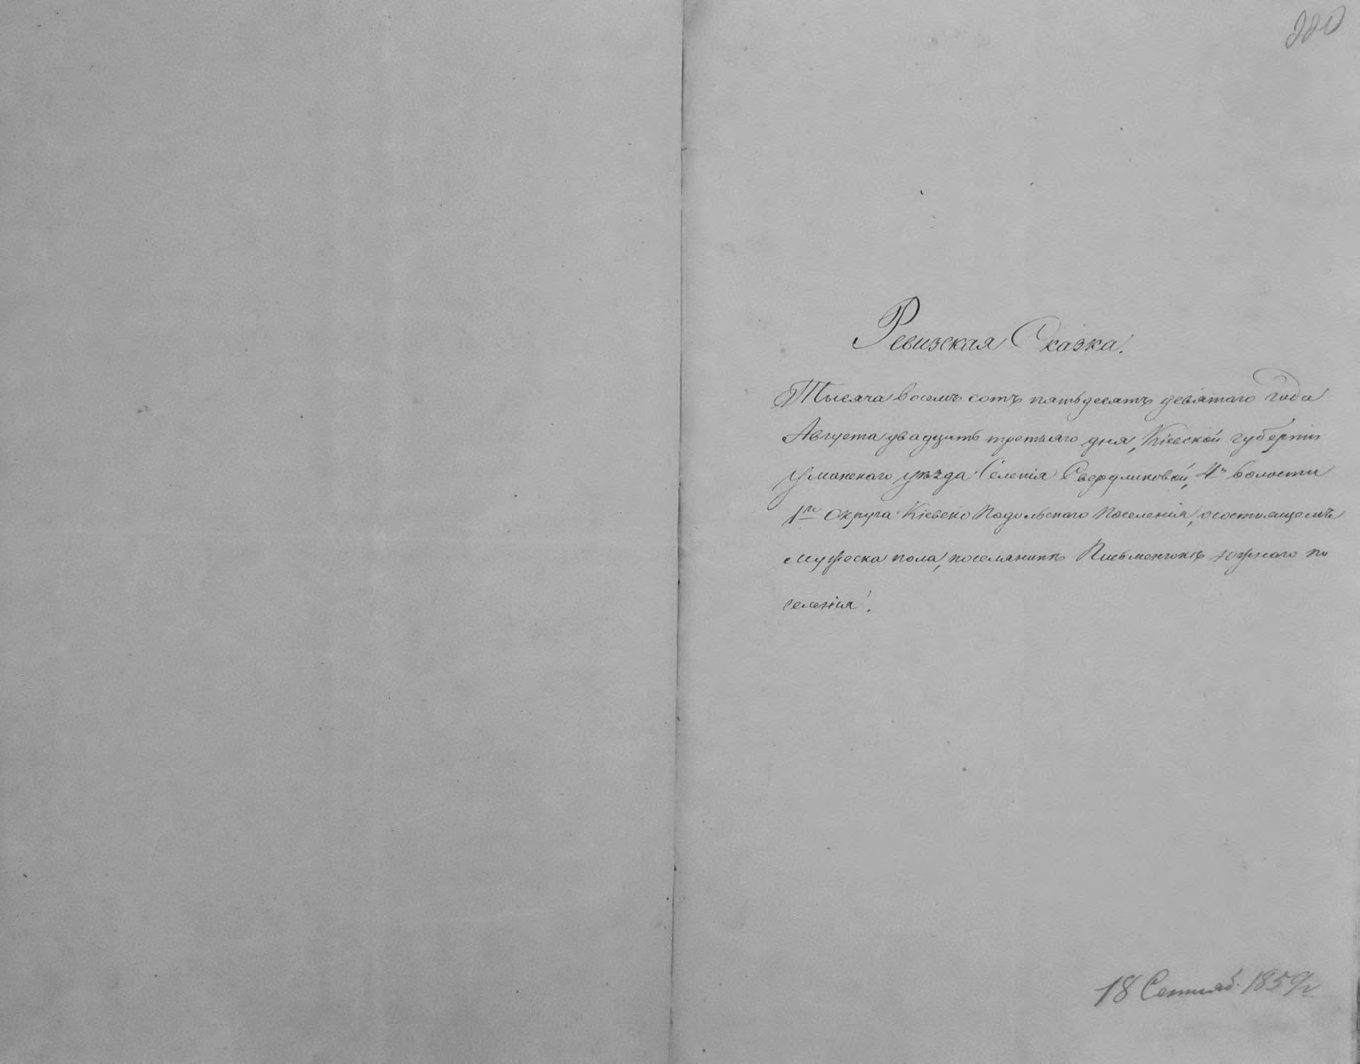 Ревизская Сказка.
Тысяча восемь сотъ пятьдесятъ девятаго года
Августа двадцать третьяго дня, Кіевской губерніи
Уманскаго уѣзда Селенія Свердликовой, 4й волости
1го округа Кіевско Подольскаго Поселенія, о состоящемъ
мужеска пола, поселянинѣ южнаго по
селенія.
18 Сентяб. 1859 г